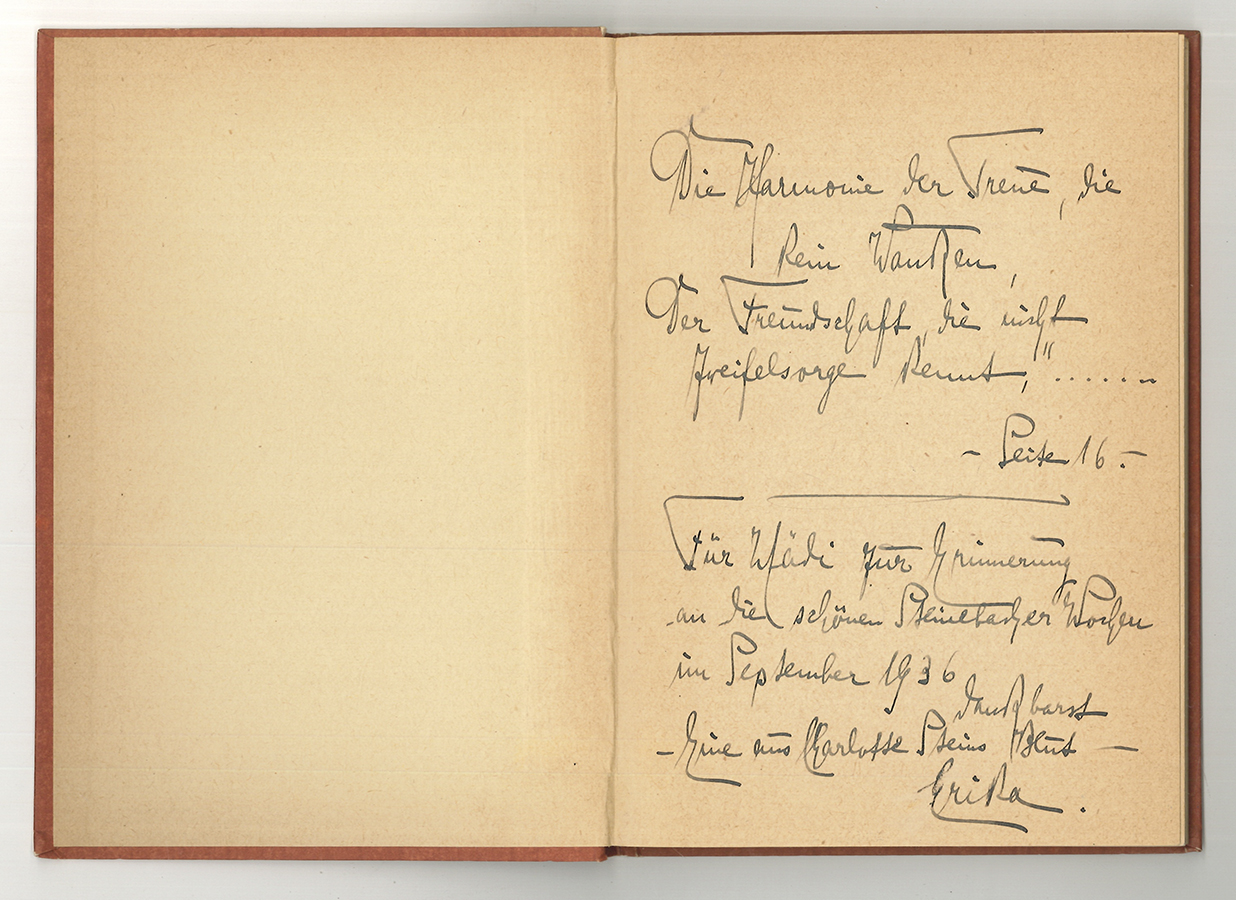 Die Harmonie der Treue, die
kein Wanken,
Der Freundschaft, die nicht
Zweifelsorge kennt,".......
- Seite 16.-
Für Hädi zur Erinnerung
an die schönen Steinebacher Wochen
im September 1936
dankbarst
- Eine aus Charlotte Steins Blut -
Erika.